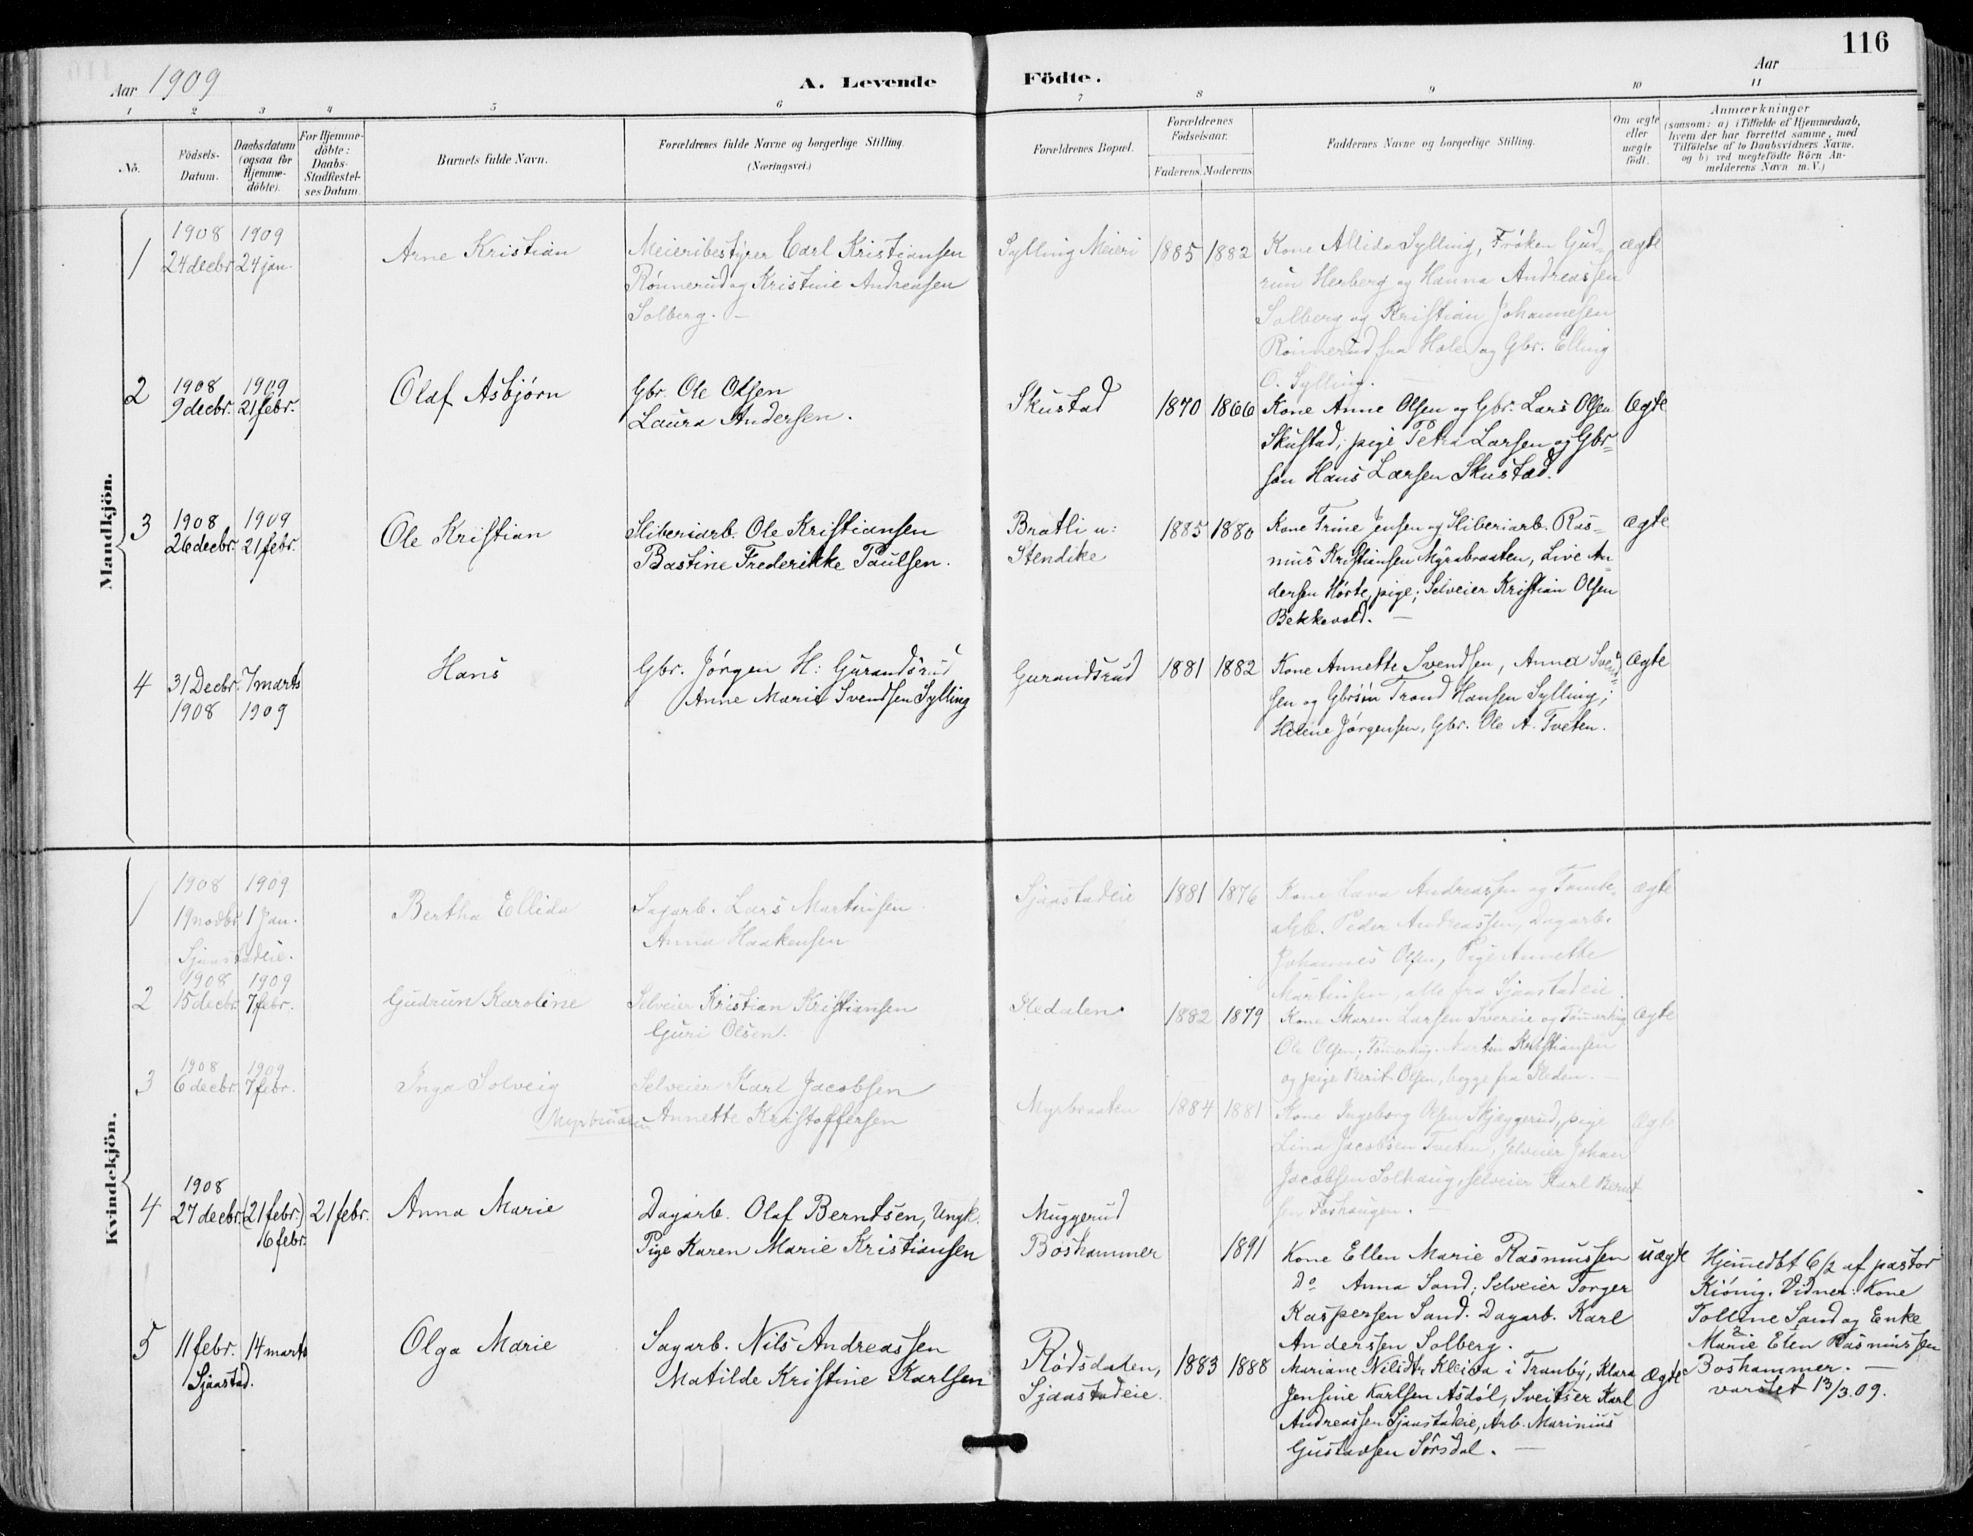 116
Aar 1909
A. Levende Födte.
Aar
1 2 3 4 5 6 7 8 9 10 11
No.
Födsels-Datum.
Daabsdatum (ogsaa for Hjemme-döbte).
For Hjemme-döbte: Daabs-Stadfæstel-ses Datum.
Barnets fulde Navn.
Forældrenes fulde Navne og borgerlige Stilling.
(Næringsvei.)
Forældrenes Bopæl.
Forældrenes Födselsaar.
Faderens. Moderens.
Faddernes Navne og borgerlige Stilling.
Om ægte eller uægte født.
Anmærkninger
(saasom: a) i Tilfælde af Hjemmedaab,
hvem der har forrettet samme, med
Tilföielse af to Daabsvidners Navne,
og b) ved uægtefödte Börn An-
melderens Navn m. V.)
Mandkjön.
1
1908 1909
24 decbr. 24 jan.
Arne Kristian
Meieribestyrer Carl Kristiansen
Rønnerud og Kristine Andreasen
Solberg. —
Sylling Meieri
1885 1882
Kone Allida Sylling, Frøken Gud-
run Herberg og Hanna Andreassen
Solberg og Kristian Johannesen
Rønnerud fra Hole og Gbr. Elling
O. Sylling.
ægte
2
1908 1909
9 decbr. 21 febr.
Olaf Asbjørn
Gbr. Ole Olsen
Laura Andersen.
Skustad
1870 1866
Kone Anne Olsen og Gbr. Lars Olsen
Skustad; pige Petra Larsen og Gbr-
søn Hans Larsen Skustad.
Ægte
3
1908 1909
26 decbr. 21 febr.
Ole Kristian
Sliberiarb. Ole Kristiansen
Bastine Frederikke Paulsen.
Bratli u:
Stendike
1885 1880
Kone Trine Jensen og Sliberiarb. Ras-
mus Kristiansen Myrabraaten, Live An-
dersen Hørte, pige; Selveier Kristian Olsen
Bekkevold. —
ægte
4
31 Decbr. 7 marts
1908 1909
Hans
Gbr. Jørgen H: Gurandsrud
Anne Marie Svendsen Sylling
Gurandsrud
1881 1882
Kone Annette Svendsen, Anna Svend-
sen og Gbrsøn Trond Hansen Sylling;
Heline Jørgensen, Gbr. Ole A. Tveten.
Ægte
Kvindekjön.
1
1908 1909
19 novbr. 1 Jan.
Sjaastadeie.
Bertha Ellida
Sagarb. Lars Martinsen
Anna Haakensen
Sjaastadeie
1881 1876
Kone Lava Andreassen og
Peder Andreassen, Dagarb.
Johannes Olsen, Pige Annette
Martinsen, alle fra Sjaastadeie
ægte
2
1908 1909
15 decbr. 7 febr.
Gudrun Karoline
Selveier Kristian Kristiansen
Guri Olsen.
Pledalen
1882 1879
Kone Maren Larsen Svereie og Tømmerhug.
Ole Olsen; Tømmerhug. Martin Kristiansen
og pige Berit Olsen, begge fra Pleden. —
Ægte
3
1908 1909
6 decbr. 7 febr.
Inga Solveig
Myrbraaten
Selveier Karl Jacobsen
Annette Kristoffersen
Myrbraaten
1884 1881
Kone Ingeborg Olsen Skjeggerud, pige
Lina Jacobsen Tveten, Selveier Johan
Jacobsen Solhaug, selveier Karl Bernt
sen Foshaugen. —
Ægte
4
1908
27 decbr. (21 febr.) 21 febr.
16 febr.
Anna Marie
Dagarb. Olaf Berntsen, Ungk.
Pige Karen Marie Kristiansen
Muggerud
Boshammer
1891
Kone Ellen Marie Rasmussen
Do Anna Sand; Selveier Torger
Kaspersen Sand. Dagarb. Karl
Anderssen Solberg.
uægte
Hjemmedbt 6/2 af pastor
Kiønig. Vidner: Kone
Tolline Sand og Enke
Marie Elen Rasmussen
Boshammer. —
varslet 13/3.09.
5
11 febr. 14 marts
Sjaastad.
Olga Marie
Sagarb. Nils Andreassen
Matilde Kristine Karlsen
Rødsdalen,
Sjaastadeie.
1883 1888
Mariane Nilsdtr. Kleiva i Tranby, Klara
Jensine Karlsen Asdøl, Sveitser Karl
Andreassen Sjaastadeie, Arb. Marinius
Gustavsen Sørsdal. —
Ægte